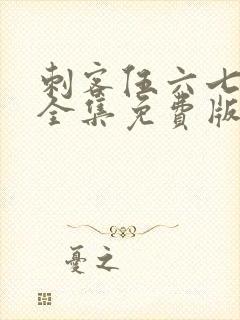 刺客伍六七
全集免费版
憂之